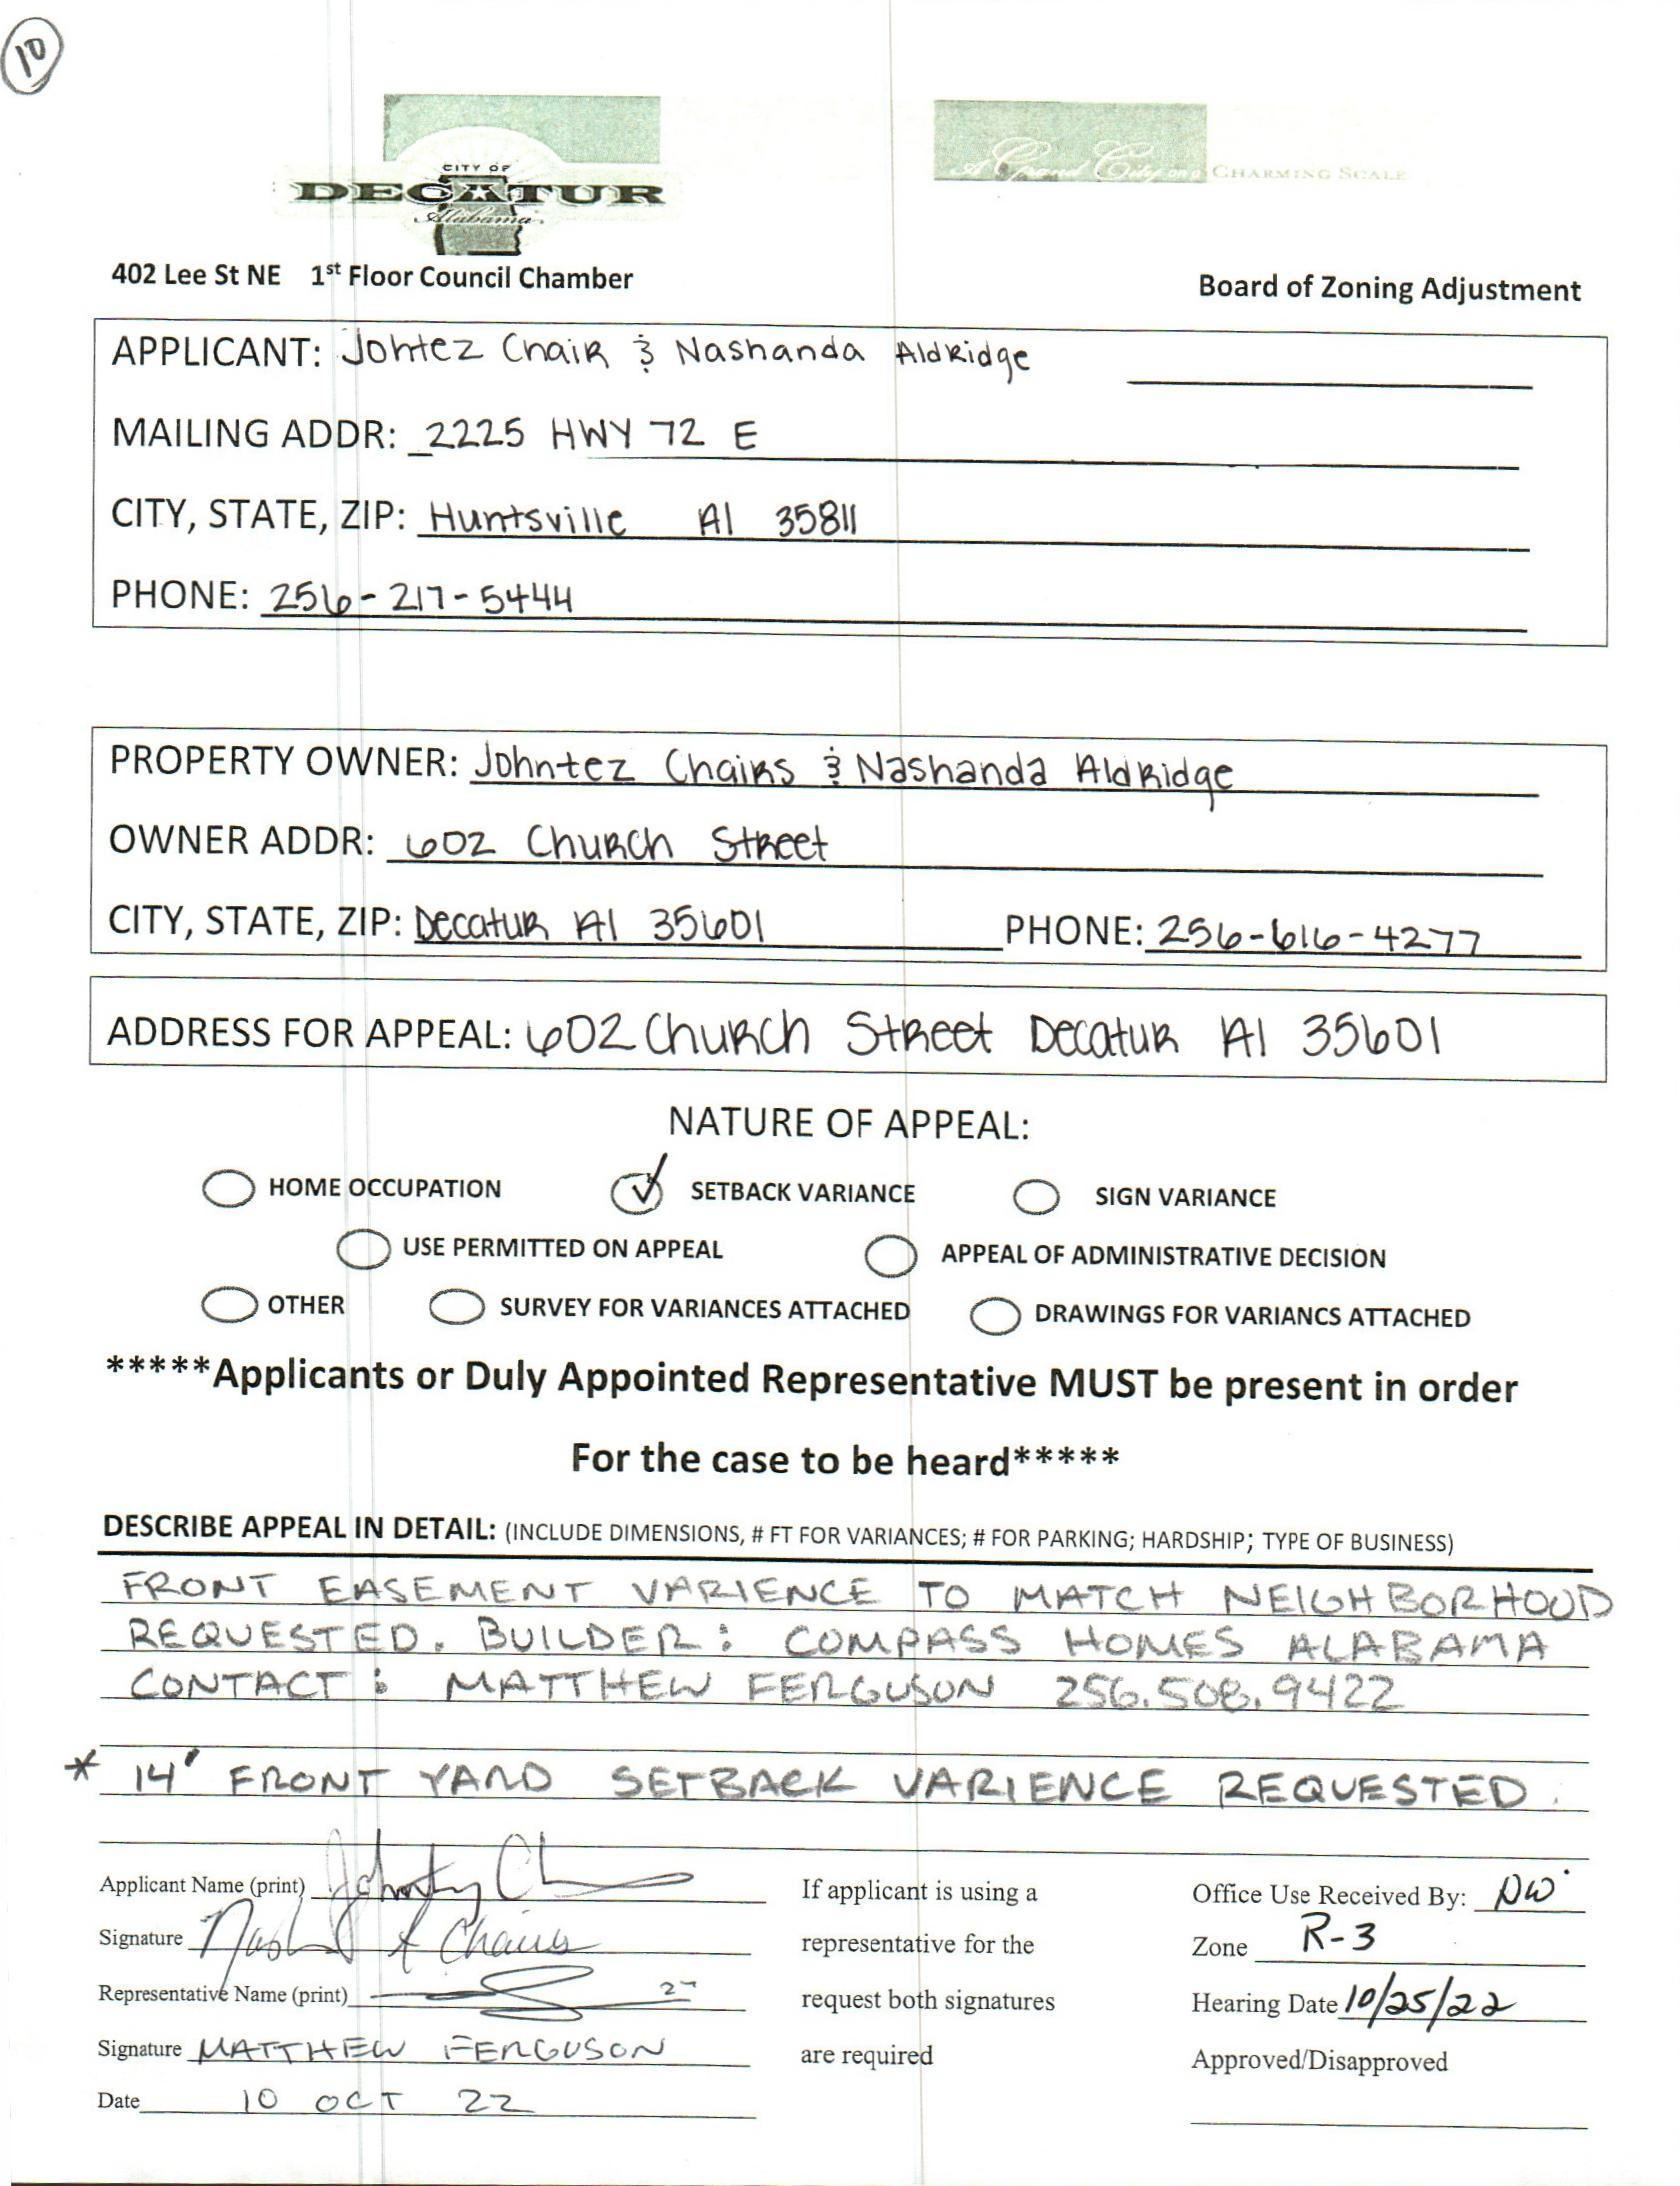 10
CITY OF
DECATUR
Alabama
A Grand City on a CHARMING SCALE
402 Lee St NE 1st Floor Council Chamber
Board of Zoning Adjustment
APPLICANT: Johtez Chair & Nashanda Aldridge
MAILING ADDR: 2225 HWY 72 E
CITY, STATE, ZIP: Huntsville Al 35811
PHONE: 256-217-5444
PROPERTY OWNER: Johntez Chairs & Nashanda Aldridge
OWNER ADDR: 602 Church Street
CITY, STATE, ZIP: Decatur Al 35601 PHONE: 256-616-4277
ADDRESS FOR APPEAL: 602 Church Street Decatur Al 35601
NATURE OF APPEAL:
HOME OCCUPATION SETBACK VARIANCE SIGN VARIANCE
USE PERMITTED ON APPEAL APPEAL OF ADMINISTRATIVE DECISION
OTHER SURVEY FOR VARIANCES ATTACHED DRAWINGS FOR VARIANCS ATTACHED
*****Applicants or Duly Appointed Representative MUST be present in order
For the case to be heard*****
DESCRIBE APPEAL IN DETAIL: (INCLUDE DIMENSIONS, # FT FOR VARIANCES; # FOR PARKING; HARDSHIP; TYPE OF BUSINESS)
FRONT EASEMENT VARIENCE TO MATCH NEIGHBORHOOD
REQUESTED. BUILDER: COMPASS HOMES ALABAMA
CONTACT: MATTHEW FERGUSON 256.508.9422
* 14' FRONT YARD SETBACK VARIENCE REQUESTED.
Applicant Name (print) If applicant is using a Office Use Received By: DW
Signature Chairs representative for the Zone R-3
Representative Name (print) request both signatures Hearing Date 10/25/22
Signature MATTHEW FERGUSON are required Approved/Disapproved
Date 10 OCT 22